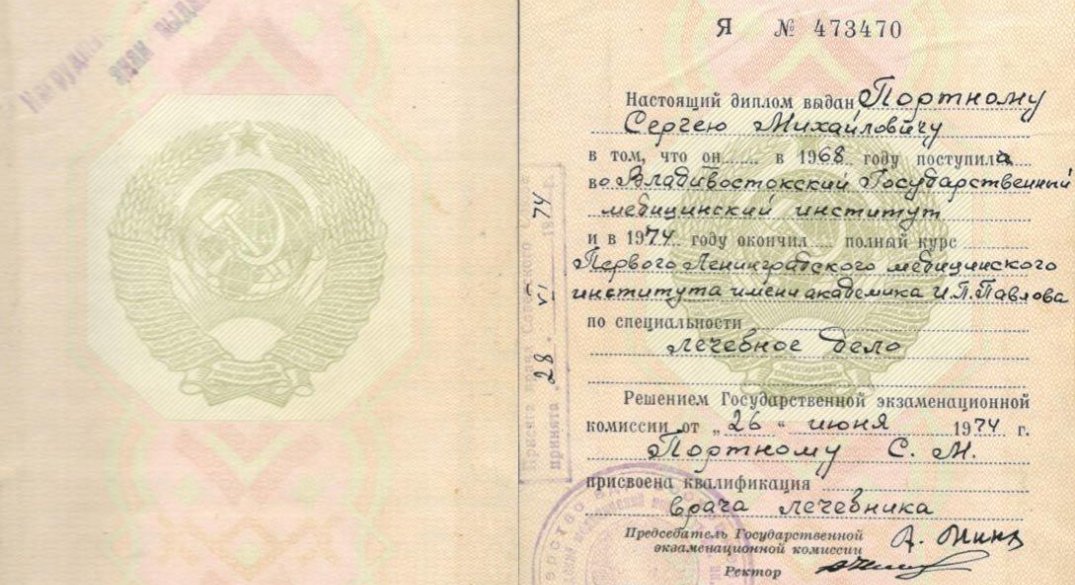 Я № 473470
Настоящий диплом выдан Портному
Сергею Михайловичу
в том, что он в 1968 году поступил
во Владивостокский Государственный
медицинский институт
и в 1974 году окончил полный курс
Первого Ленинградского медицинского
института имени академика И.П.Павлова
по специальности
лечебное дело
Решением Государственной экзаменационной
комиссии от „26“ июня 1974 г.
Портному С. М.
присвоена квалификация
врача лечебника
Председатель Государственной
экзаменационной комиссии
Ректор
Присяга врача Советского
принята „28“ VI 1974 г.